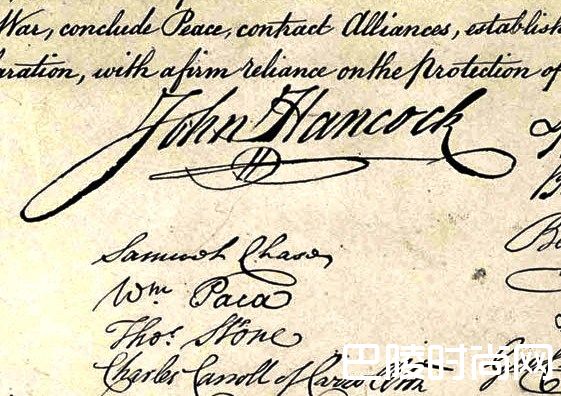 War, conclude Peace, contract Alliances, establish
laration, with a firm reliance on the Protection of
John Hancock
H
Samuel Chase
Wm Paca
Thos. Stone
Charles Carroll of Carrollton
巴陵时尚网